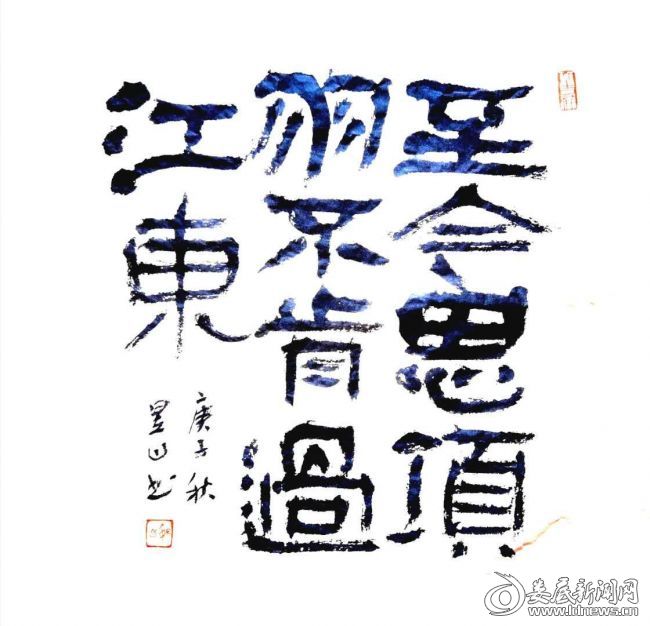 至今思項
羽不肯過
江東
庚子秋
书
娄底新闻网
www.ldnews.cn